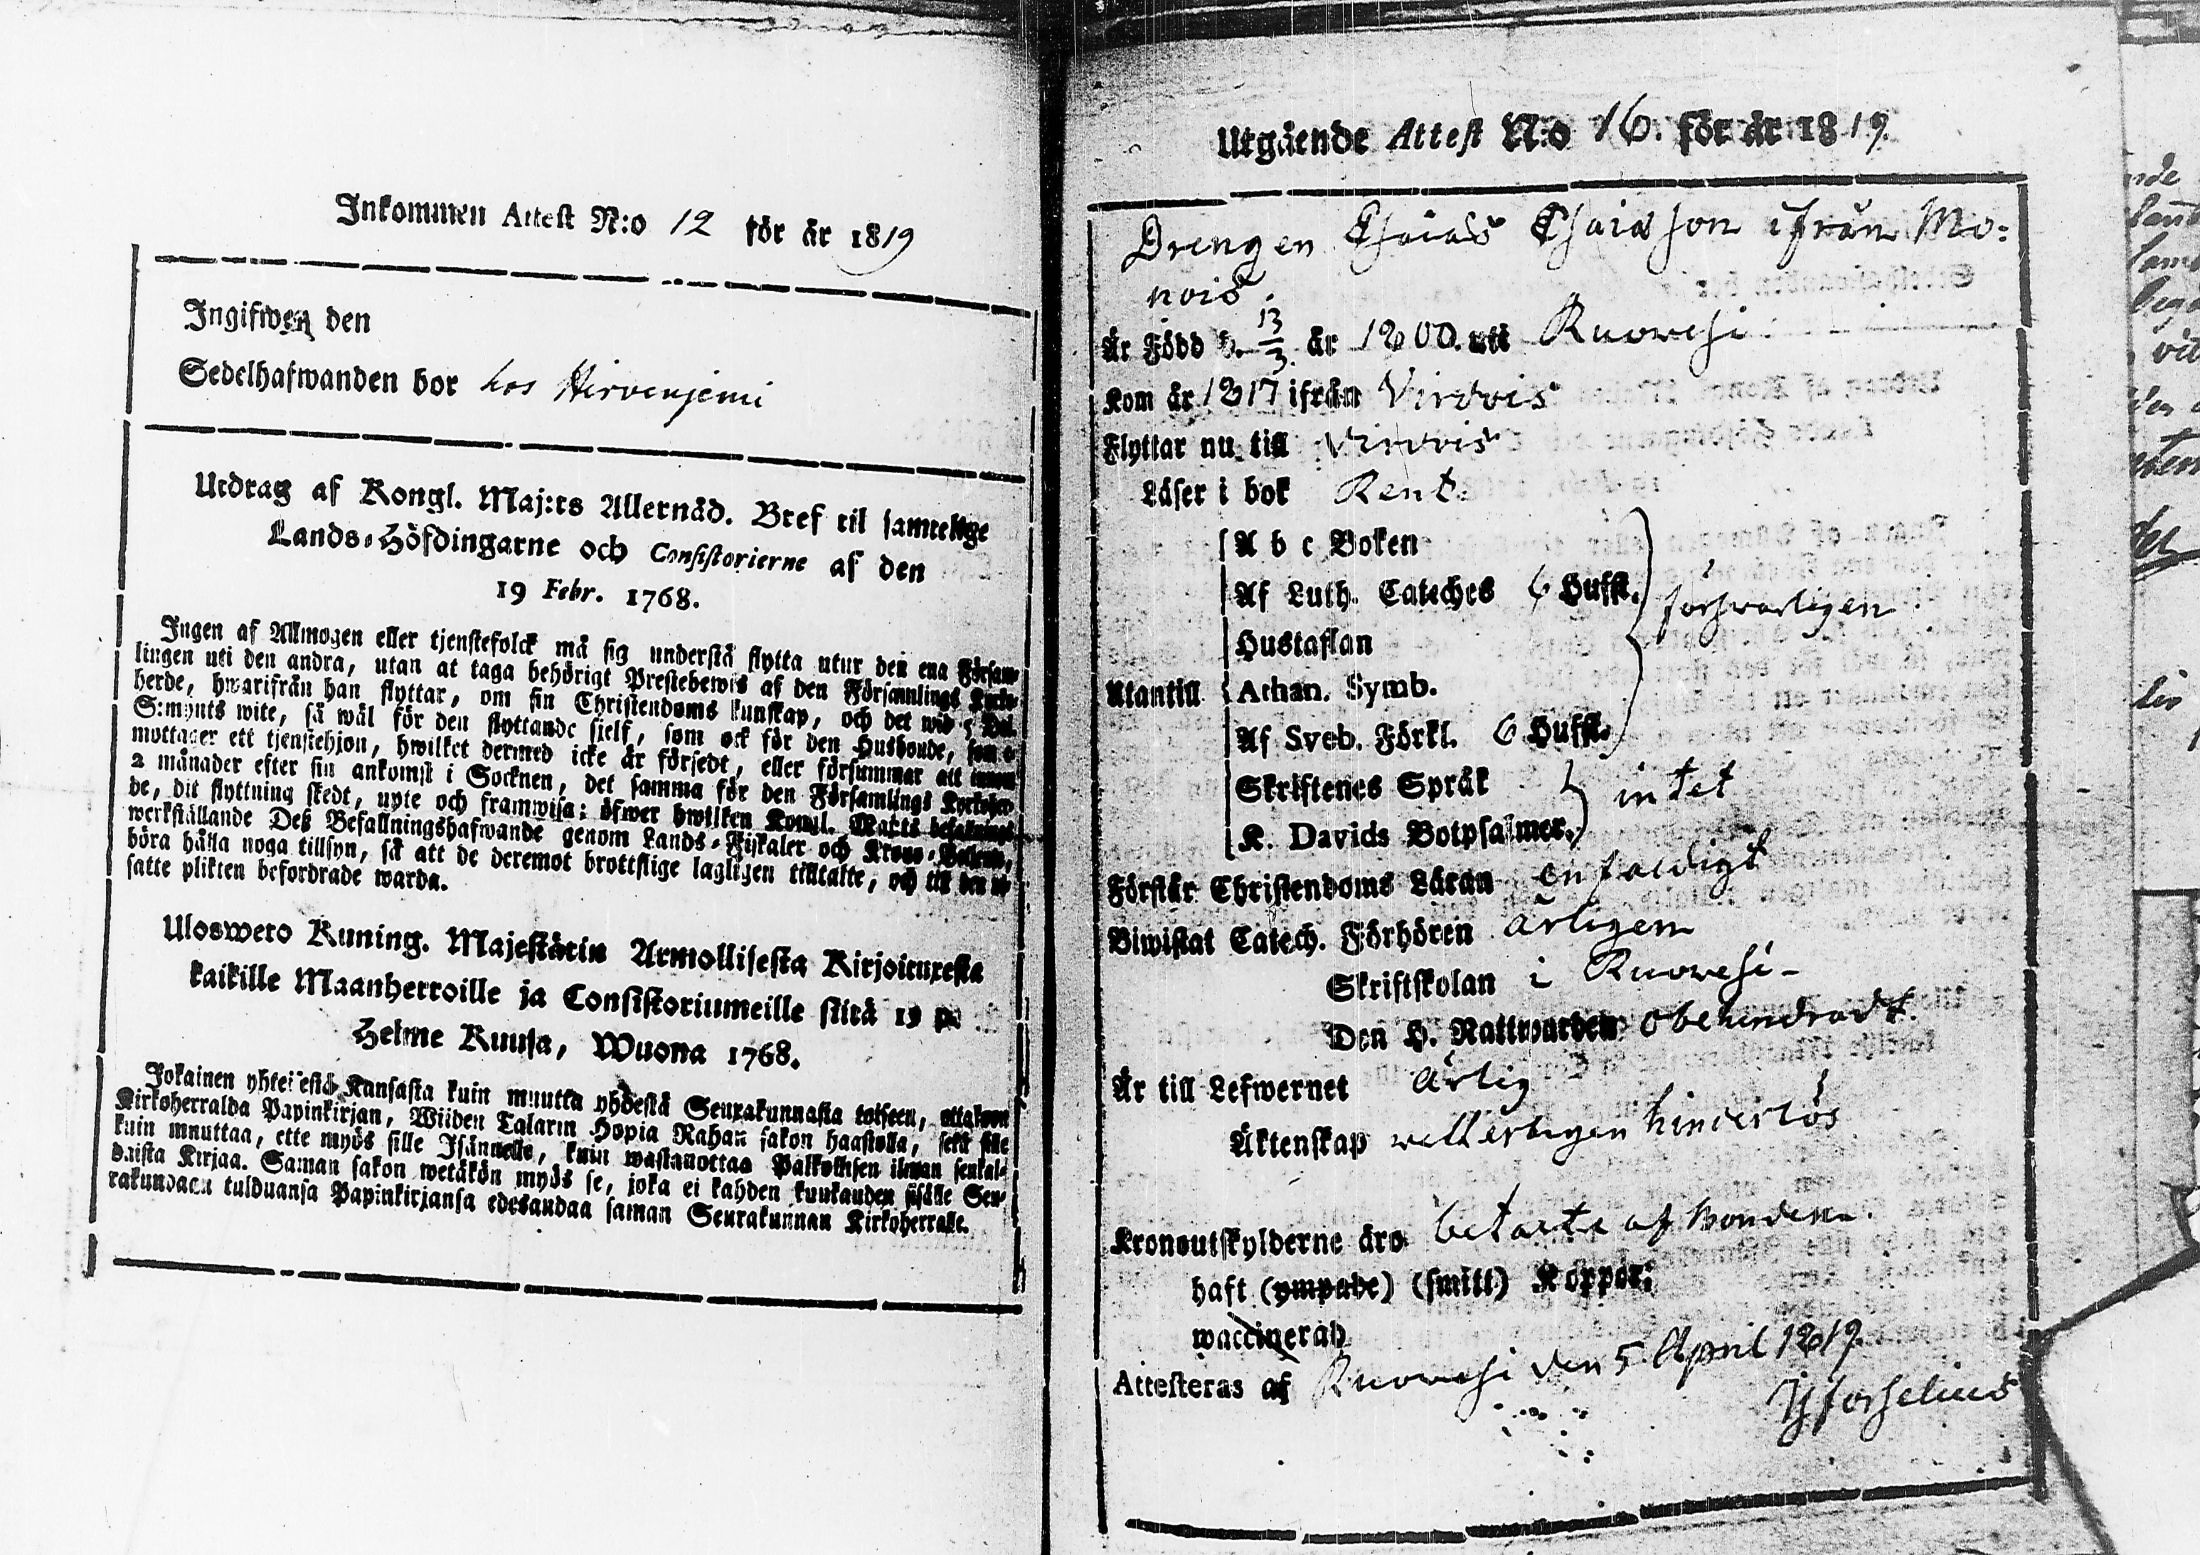 Inkommen Attest N:o 12 för år 1819
Ingifwen den
Sedelhafwanden bor hos Hirvenjemi
Utdrag af Kongl. Maj:ts Allernåd. Bref til samtelige
Lands-Höfdingarne och Consistorierne af den
19 Febr. 1768.
Ingen af Allmogen eller tjenstefolck må sig understå flytta utur den ena Försam-
lingen uti den andra, utan at taga behörigt Prestebewis af den Församlings Kyrko-
herde, hwarifrån han flyttar, om sin Christendoms kunskap, och det wid 5 Dal.
S:mynts wite, så wäl för den flyttande sjelf, som ock för den Husbonde, som e-
mottager ett tjenstehjon, hwilket dermed icke är försedt, eller försummar att innom
2 månader efter sin ankomst i Socknen, det samma för den Församlings Kyrkoher-
de, dit flyttning skedt, upte och framwisa; öfwer hwilken Kongl. Maj:ts befallnings
werkställande Deß Befallningshafwande genom Lands-Fiskaler och Krono-Betjente,
böra hålla noga tillsyn, så att de deremot brottslige lagligen tilltalte, och till den ut-
satte plikten befordrade warda.
Ulosweto Kuning. Majestätin Armollisesta Kirjoituxesta
kaikille Maanherroille ja Consistoriumeille siitä 19 p.
Helme Kuusa, Wuona 1768.
Jokainen yhteisestä Kansasta kuin muutta yhdestä Seurakunnasta toiseen, ottakoon
Kirkoherralda Papinkirjan, Wiiden Talarin Hopia Rahan sakon haastolla, sekä sille
kuin muuttaa, ette myös sille Isännelle, kuin wastanottaa Palkollisen ilman senkal-
daista Kirjaa. Saman sakon wetäkön myös se, joka ei kahden kuukauden sisälle Seu-
rakundaan tulduansa Papinkirjansa edesandaa saman Seurakunnan Kirkoherralle.
Utgående Attest N:o 16. för år 1819.
Drengen Esaias Esaiasson ifrån Mo-
nois.
Är Född d. 13/3 år 1800. uti Ruowesi
Kom år 1817 ifrån Virdois
Flyttar nu till Virdois
Läser i bok Rent.
A b c Boken
Af Luth. Cateches 6 Hufst. försvarligen
Hustaflan
Utantill Athan. Symb.
Af Sveb. Förkl. 6 Hufst.
Skriftenes Språk intet
K. Davids Botpsalmer.
Förstår Christendoms Läran enfaldigt
Biwistat Catech. Förhören årligen
Skriftskolan i Ruowesi
Den H. Nattwarden obehindradt.
Är till Lefwernet ärlig
Äktenskap hinderlös
Kronoutskylderne äro betalte af bonden.
haft (ympade) (smitt) Koppor;
waccinerad
Attesteras af Ruowesi den 5 April 1819.
Hforselius